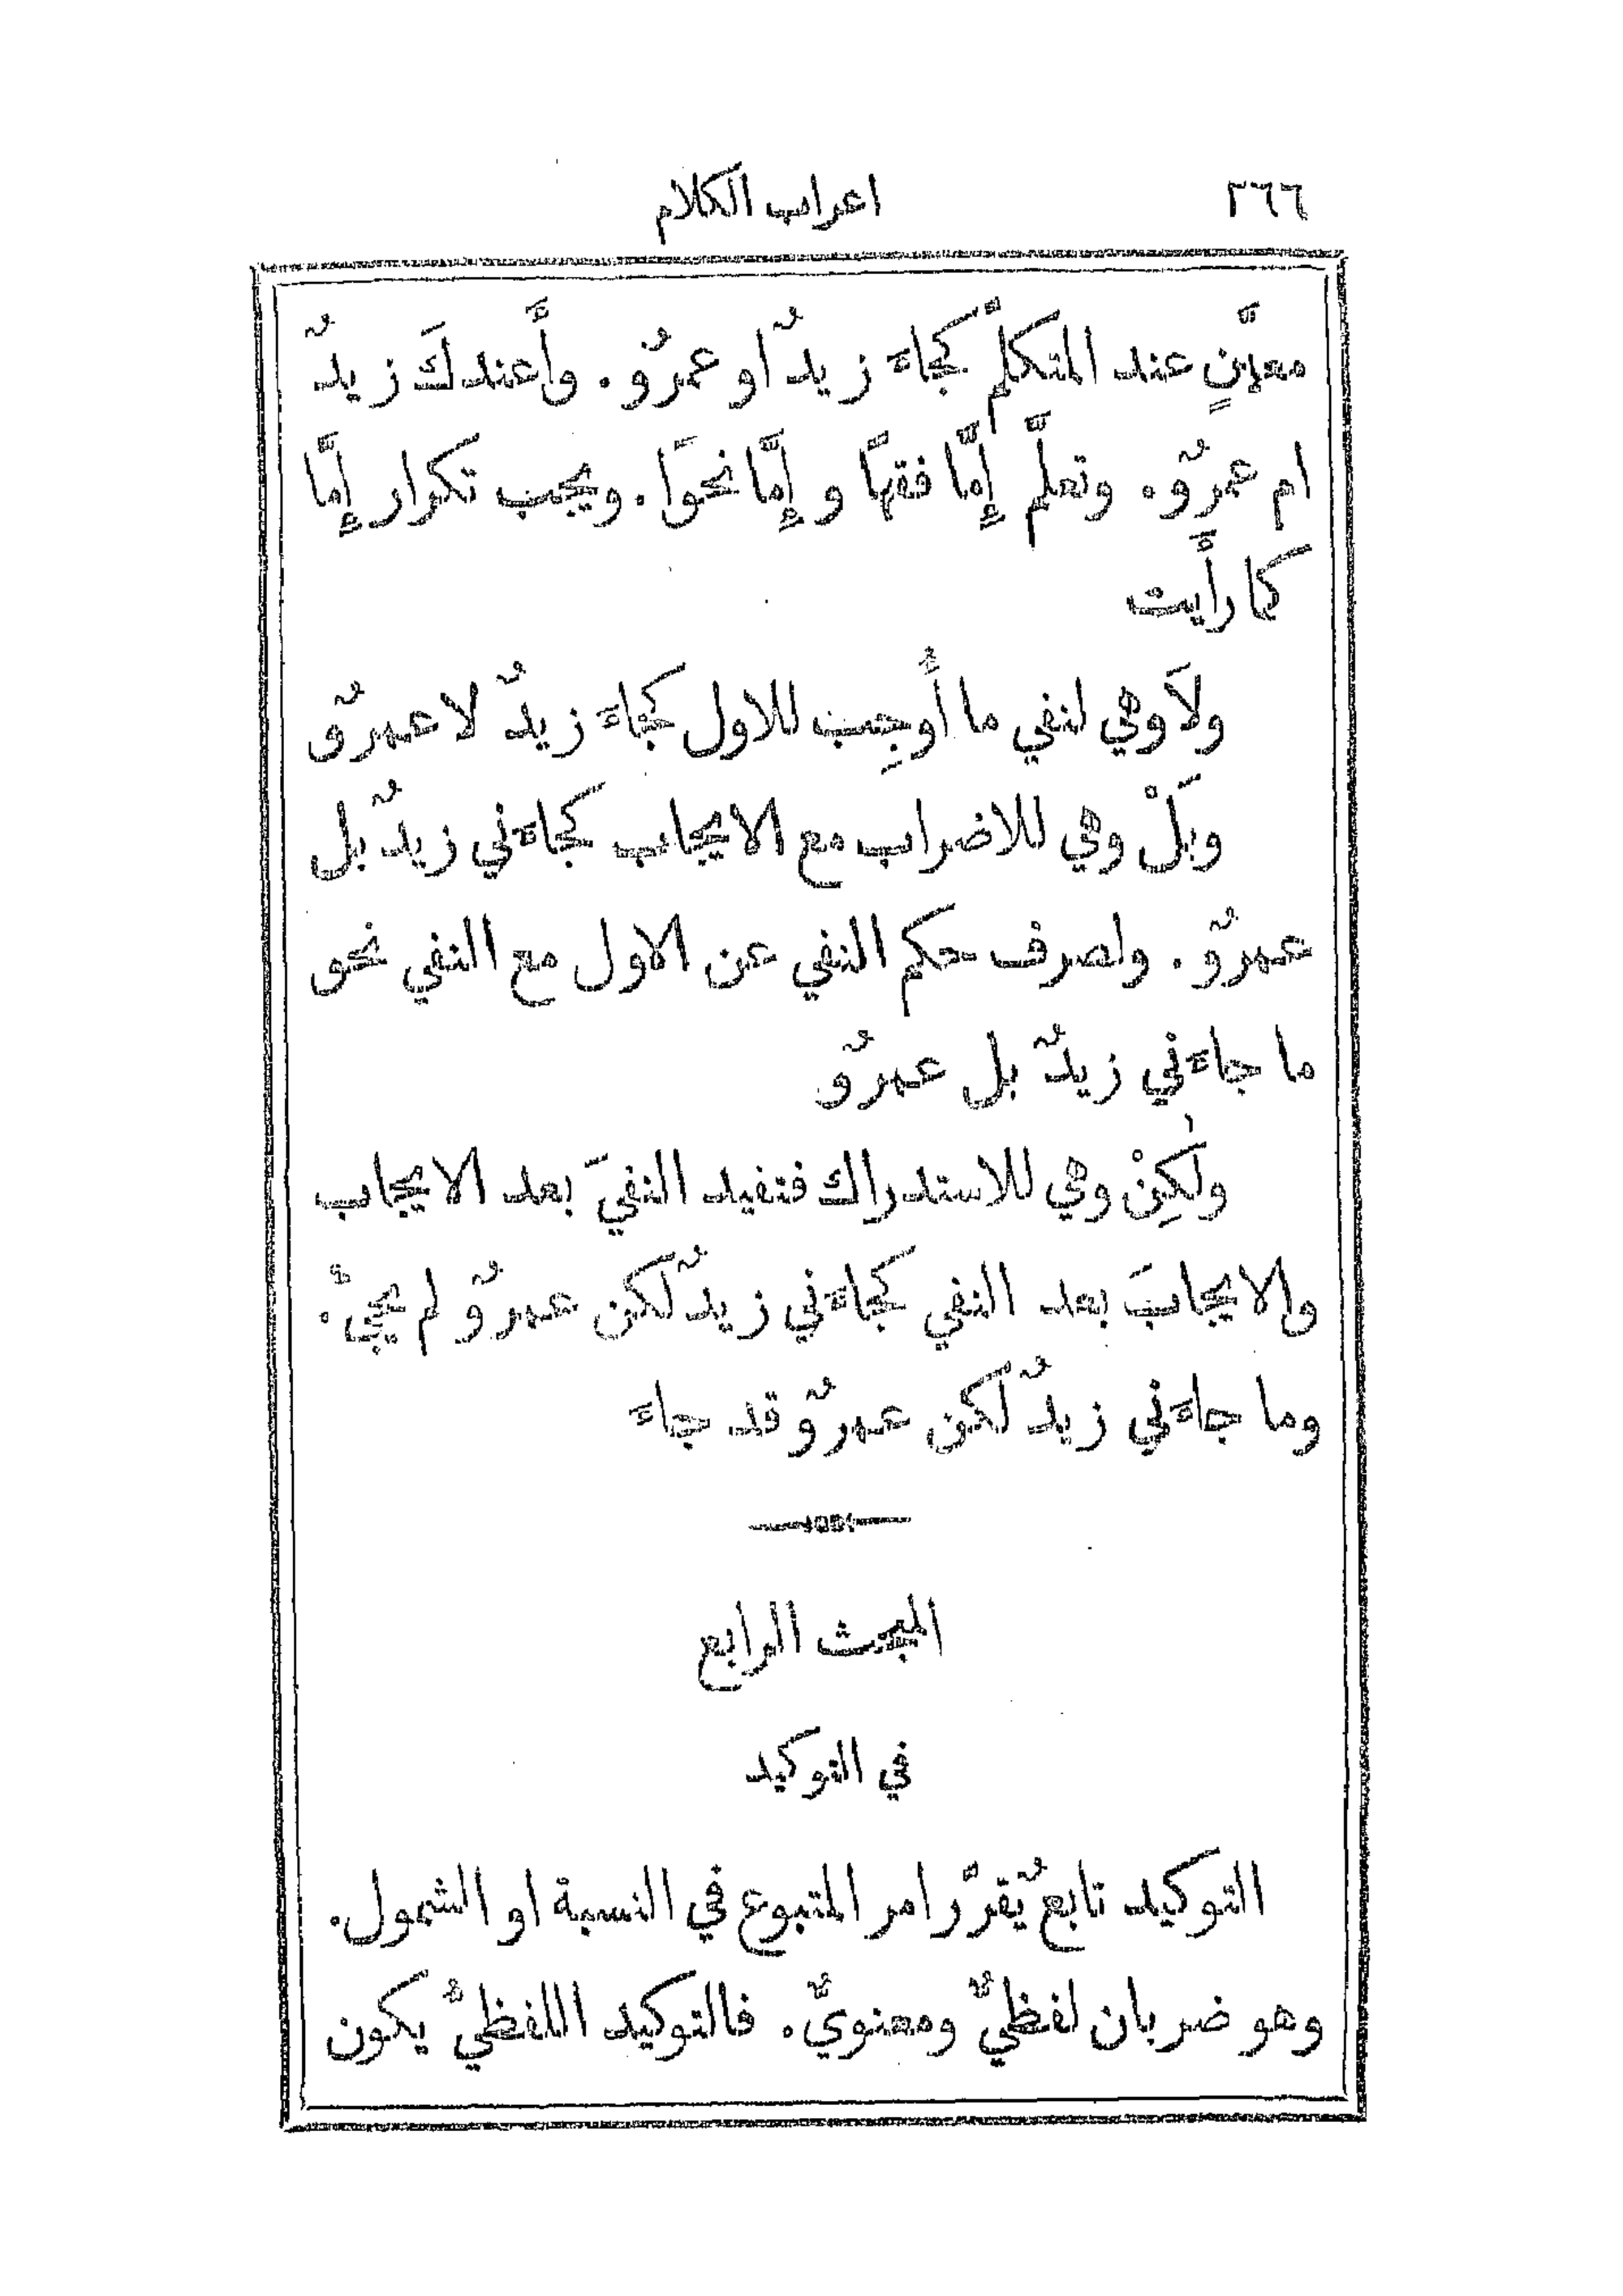 ٢٦٦ اعراب الكلام
معيَّنٍ عند المتكلّم كجاءَ زيدٌ او عمرٌو. وأَعندكَ زيدٌ
ام عمرٌو. وتعلَّم إِمَّا فقهًا وإِمَّا نحوًا. ويجب تكرار إِمَّا
كما رأَيت
ولَا وهي لنفي ما أُوجِب للاول كجاءَ زيدٌ لا عمرٌو
وبَلْ وهي للاضراب مع الايجاب كجاءَني زيدٌ بل
عمرٌو. ولصرف حكم النفي عن الاول مع النفي نحو
ما جاءَني زيدٌ بل عمرٌو
ولٰكِنْ وهي للاستدراك فتفيد النفيَ بعد الايجاب
والايجابَ بعد النفي كجاءَني زيدٌ لكن عمرٌو لم يجيْ.
وما جاءَني زيدٌ لكن عمرٌو قد جاءَ
المبحث الرابع
في التوكيد
التوكيد تابعٌ يُقرّر امر المتبوع في النسبة او الشمول.
وهو ضربان لفظيٌّ ومعنويٌّ. فالتوكيد اللفظيُّ يكون